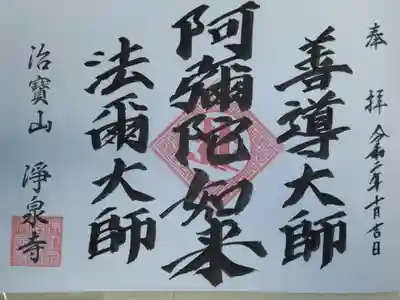 奉拝 令和二年十一月吉日
善導大師
阿彌陀如来
法爾大師
治寶山 淨泉寺